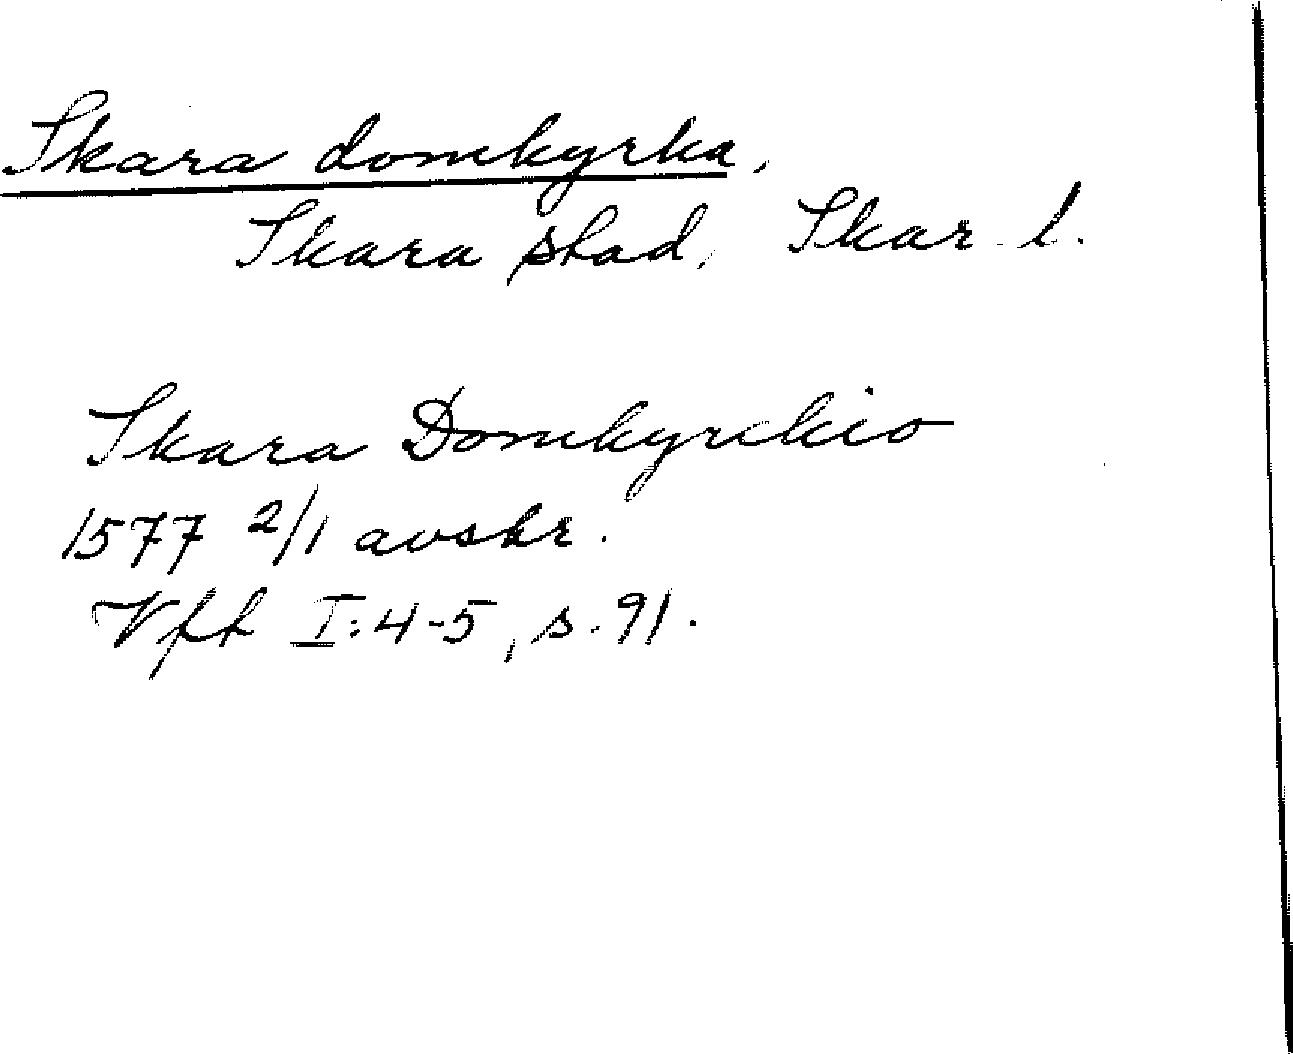 Skara domkyrka,
Skara stad, Skar. l.
Skara Domkyrckio
1577 2/1 avskr.
Vft I:4-5, s. 91.